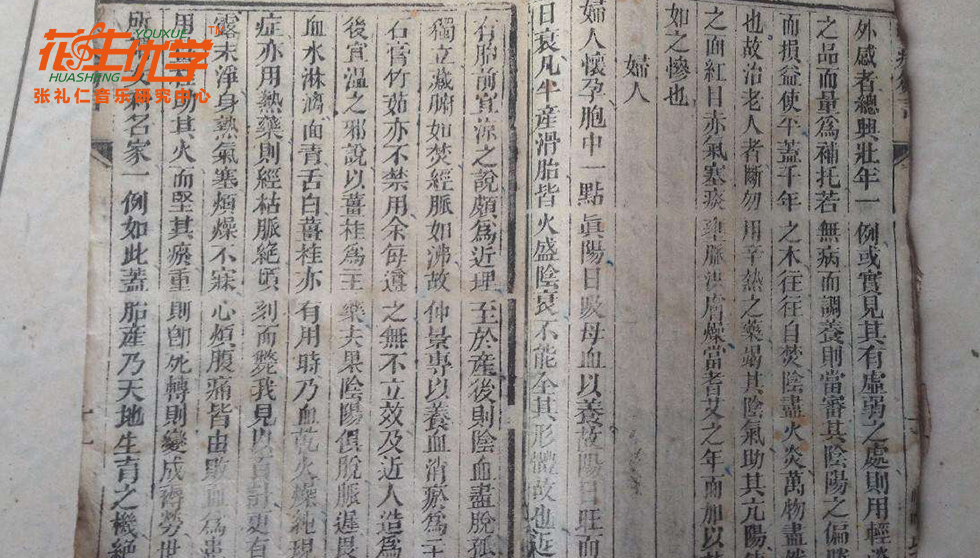 花生优学
YOUXUE
HUASHENG
TM
张礼仁音乐研究中心
外感者總與壯年一例或實見其有虛弱之處則用輕
之品而量爲補托若無病而調養則當審其陰陽之偏
而損益使平蓋千年之木往往自焚陰盡火炎萬物盡
也故治老人者斷勿用辛熱之藥竭其陰氣助其亢陽
之面紅目赤氣塞痰壅脈洪膚燥當耆艾之年而加以
如之慘也
婦人
婦人懷孕胞中一點眞陽日吸母血以養故陽日旺而
日衰凡半產滑胎皆火盛陰衰不能全其形體故也近
有胎前宜涼之說頗爲近理至於產後則陰血盡脫孤
獨立藏腑如焚經脈如沸故仲景專以養血消瘀爲主
石膏竹茹亦不禁用余每遵之無不立效及近人造爲
後宜溫之邪說以薑桂爲主藥夫果陰陽俱脫脈遲畏
血水淋漓面青舌白薑桂亦有用時乃血乾火燥純現
症亦用熱藥則經枯脈絕頃刻而斃我見以百計更有
露未淨身熱氣塞煩燥不寐心煩腹痛皆由敗血爲患
用 桂助其火而堅其瘀重則卽死轉則變成褥勞世
所 名家一例如此蓋胎產乃天地生育之機絕